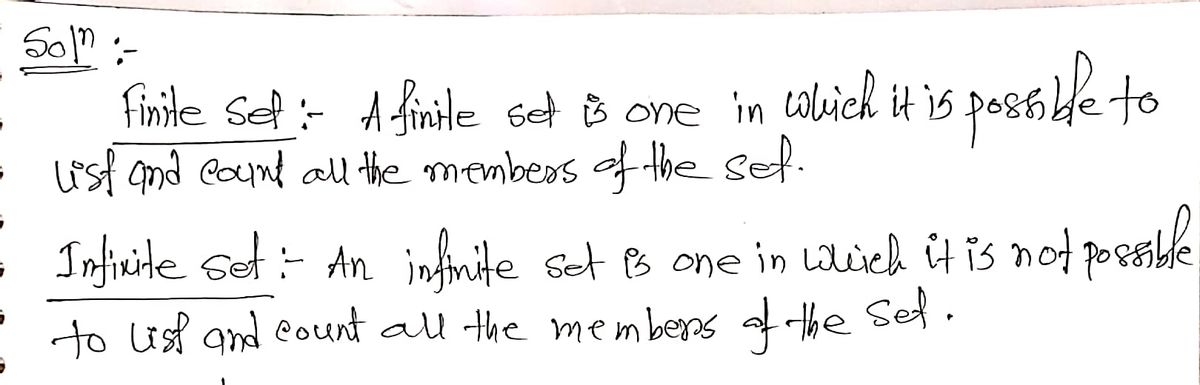 Soln :-
Finite Set :- A finite set is one in which it is possible to
list and count all the members of the set.
Infinite set :- An infinite set is one in which it is not possible
to list and count all the members of the Set.